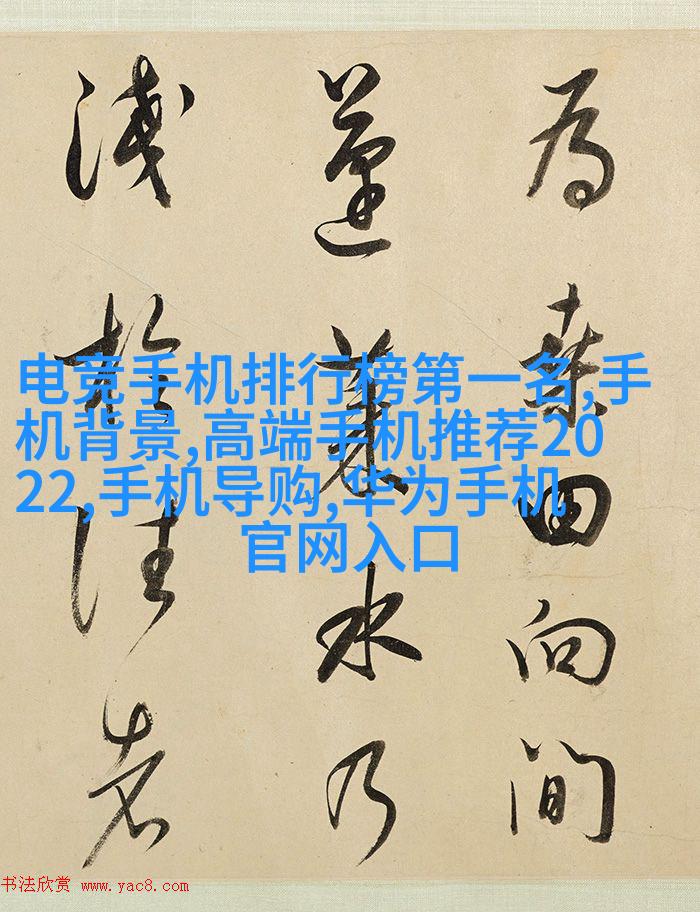 為桑田向間
蓬萊水乃
淺於往者
电竞手机排行榜第一名,手
机背景,高端手机推荐20
22,手机导购,华为手机
官网入口
书法欣赏 www.yac8.com